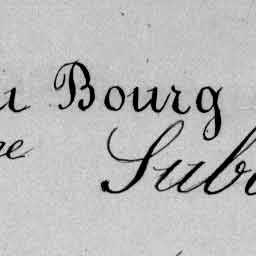 u Bourg
Sub